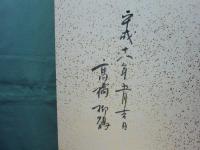 平成十八年五月吉日
高橋